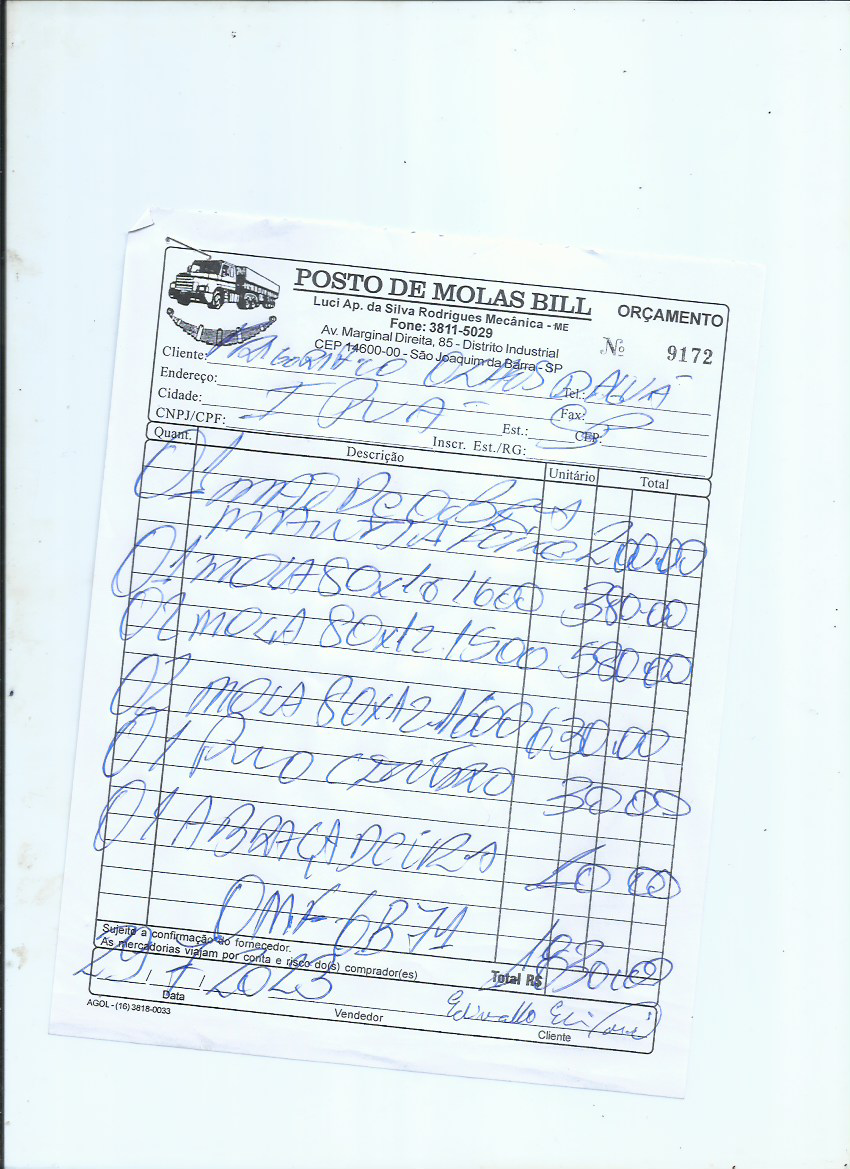 POSTO DE MOLAS BILL
ORÇAMENTO
Luci Ap. da Silva Rodrigues Mecânica - ME
Fone: 3811-5029
Av. Marginal Direita, 85 - Distrito Industrial
CEP 14600-00 - São Joaquim da Barra - SP
Nº 9172
Cliente: OLHOS DALVA
Endereço: Tel.:
Cidade: Fax:
CNPJ/CPF: Est.: SP CEP:
Inscr. Est./RG:
Quant. Descrição Unitário Total
01 MÃO DE OBRA
200.00
01 MOLA 80x10 1600 380.00
02 MOLA 80x12.1500 580.00
02 MOLA 80x12.1600 630.00
01 PINO CENTRO 30.00
01 ABRAÇADEIRA 10.00
OMF 6B71
Sujeito a confirmação do fornecedor.
As mercadorias viajam por conta e risco do(s) comprador(es)
Total R$ 1830.00
29/7/2023
Data
Vendedor
Cliente
AGOL - (16) 3818-0033